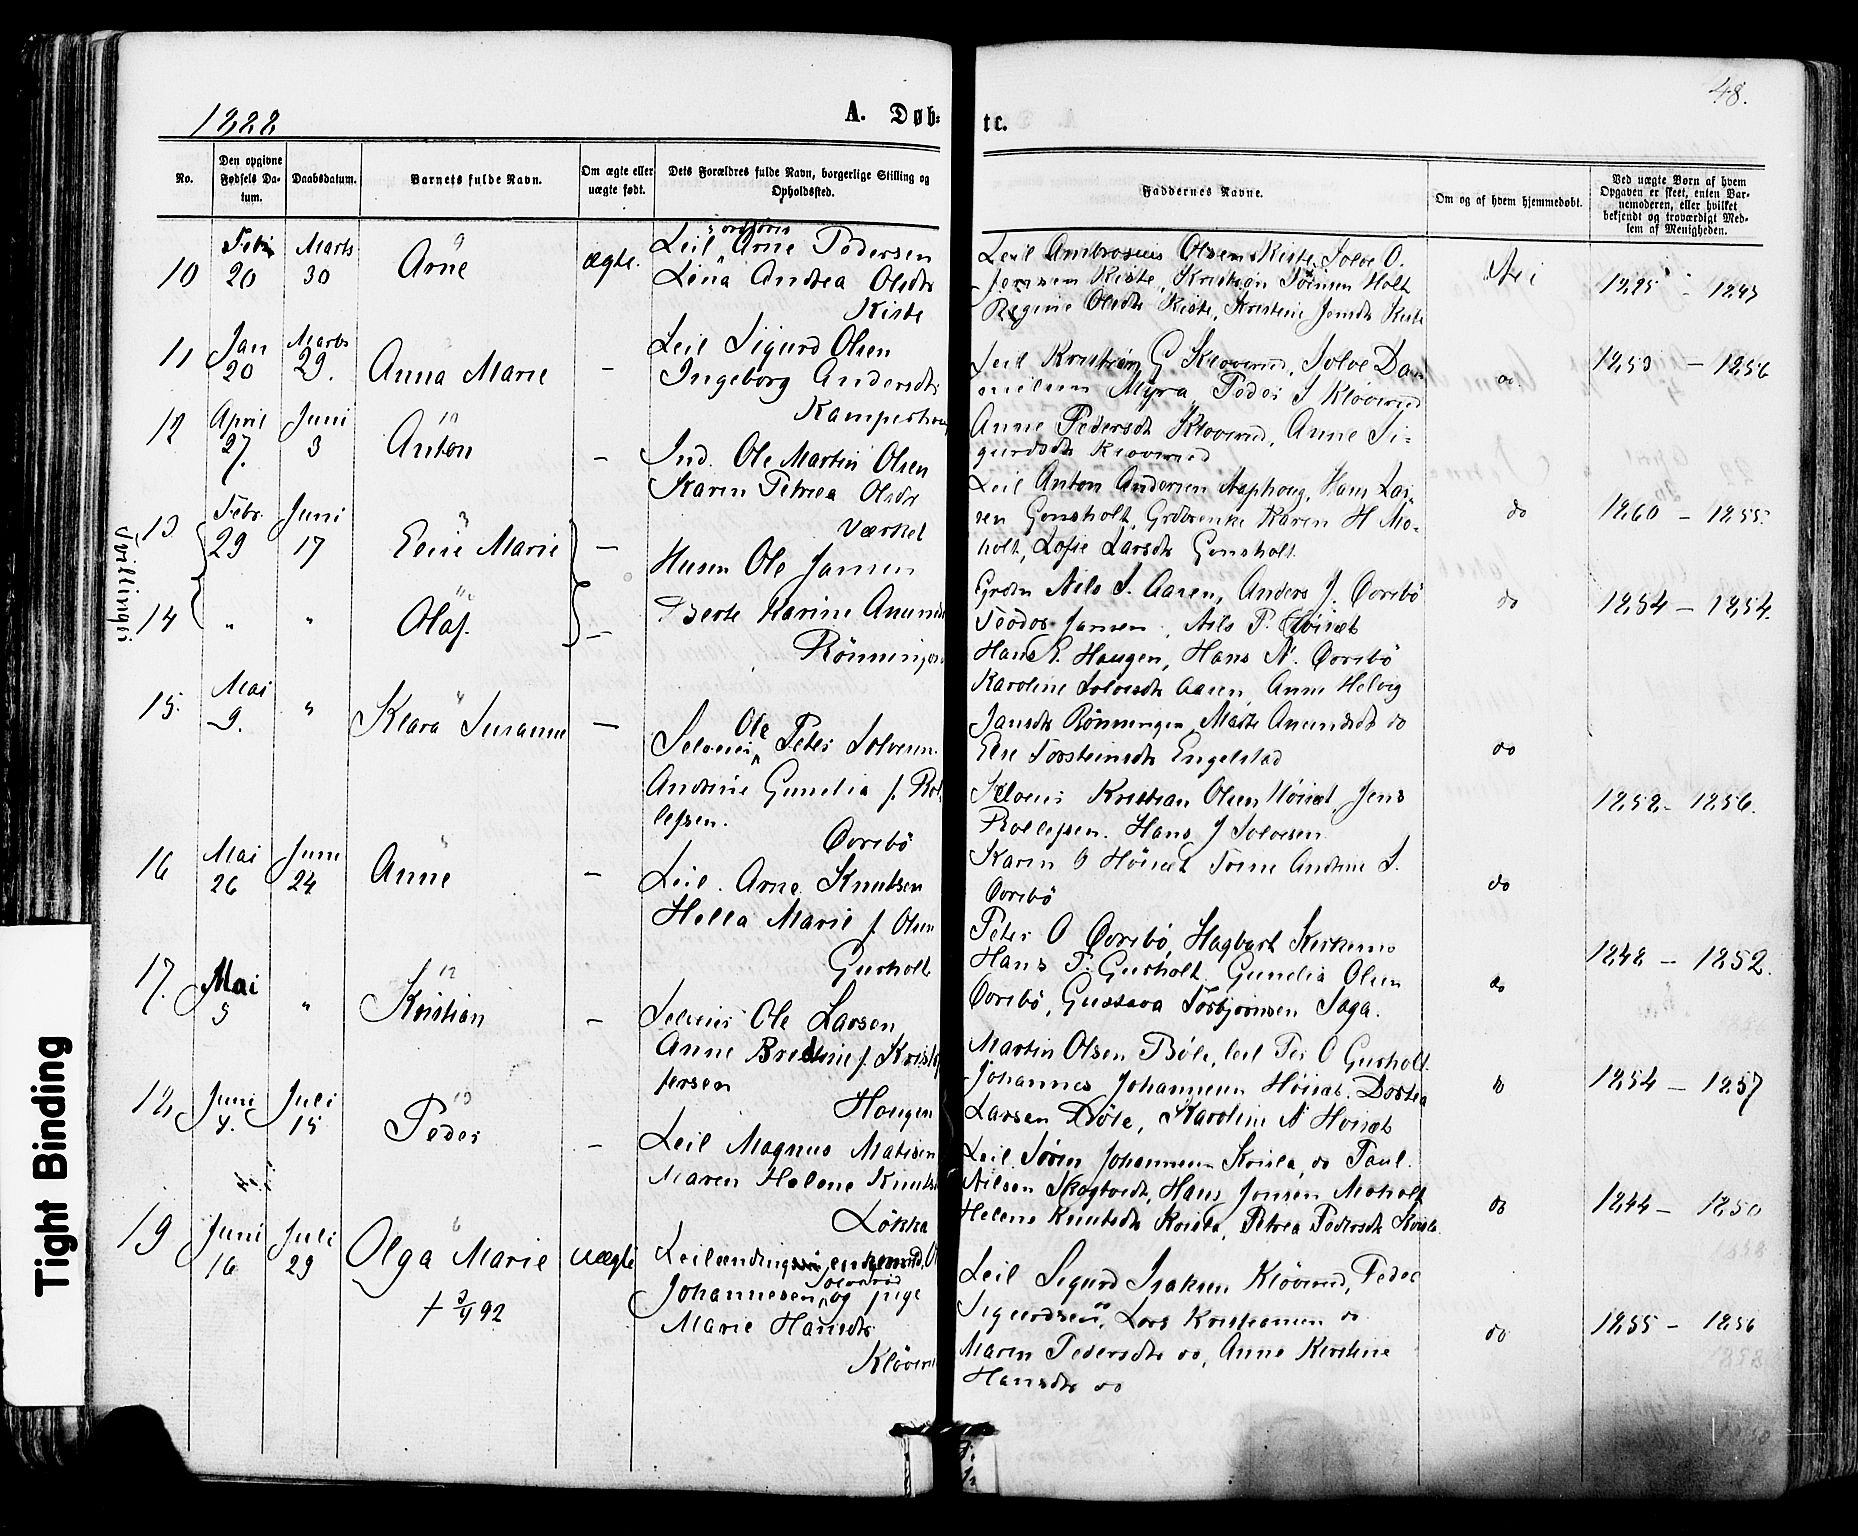 48.
1888
A. Døb-
te.
No.
Den opgivne Fødsels Da-
tum.
Daabsdatum.
Barnets fulde Navn.
Om ægte eller
uægte født.
Dets Forældres fulde Navn, borgerlige Stilling og
Opholdssted.
Faddernes Navne.
Om og af hvem hjemmedøbt.
Ved uægte Børn af hvem
Opgaven er skeet, enten Bar-
nemoderen, eller hvilket
bekjendt og troværdigt Med-
lem af Menigheden.
10
Febr
20
Marts
30
Arne
ægte.
Leil Arne Pedersen
Lena Andrea Olsdtr
Kiste
Leil Ambrosius Olsen Kiste, Solve O.
Jensen Kiste, Kristian Holt
Regine Olsdtr Kiste, Kristine Jensdtr Kiste
Nei
11
Jan
20
Marts
29.
Anna Marie
-
Leil Sigurd Olsen
Ingeborg Andersdtr
Leil Kristian G. Kløverød, Solve Da-
nielsen Myra, Peder S Kløverød
Anne Pedersdtr Kløverød, Anne Si-
gurdsdtr Kløverød
do
1853 - 1856
12
April
27.
Juni
3
Anton
-
Ind. Ole Martin Olsen
Karen Petrea Olsdtr
Værket
Leil Anton Andersen Aaphoug, Hans Lar-
sen Gonsholt, Grdbrenke Karen H Mo-
holt, Lofie Larsdtr Gonsholt
do
1860 - 1855.
Tvillinger
13
Febr
29
Juni
17
Marie
-
Husm Ole Jansen
Berte Karine Amunds
Rönningen
14
"
"
Olaf.
-
Grdm Nils S. Aasen, Anders J. Qvrebö
Teodor Jansen, Nils P.
Hans E. Haugen, Hans N. Qvrebö
Karoline Solvesdtr Aasen, Anne Helvig
Jansdtr Rönningen, Marte Amundsdtr do
Else Torsteinsdtr Engelstad
do
1854 - 1854.
do
15.
Mai
9.
"
Klara Susanne
-
Selveier Ole Peter Solvesen
Andrine Gunelia f. Rol-
lefsen.
Qvrebö
Selveier Kristian Olsen Höiset, Jens
Rollefsen. Hans J Solvesen
Karen O Höiset Andrine S.
Qvrebö
1858 - 1856.
16
Mai
26
Juni
24
Anne
-
Leil. Arne Knutsen
Hella Marie f. Olsen
Gusholt
Peter O Qvrebö, Hagbart
Hans P. Gusholt. Gunelia Olsen
Qvrebö, Gustava Torbjörnsen Saga.
do
1848 - 1852.
17.
Mai
5
"
Kristian
-
Selveier Ole Larsen
Anne f. Kristof-
fersen
Haugen
Martin Olsen Böle, leil Per O Gusholt.
Johannes Johannesen Höiset. Dortea
Larsen Böle, Karoline N Höiset
do
1854 - 1857
18
Juni
4.
Juli
15
Peder
-
Leil Magnus Matisen
Maren Helene Knuts
Løkka
Leil. Søren Johannesen Krisla, do Paul
Nilsen Skogtvedt, Hans Jonsen Moholt
Helene Knutsdtr Krisla, Petrea Pedersdtr Krisla
do
1844 - 1850
19
Juni
16
Juli
29
Olga Marie
† 3/4 92
uægte
Leilændings enkemand, O
Johannesen, og pige
Marie Hansdtr
Leil Sigurd Isaksen Kløverød, Peder
Sigurdsen do, Lars Kristiansen do
Maren Pedersdtr do, Anne Kirstine
Hansdtr do
do
1855 - 1856
Tight Binding